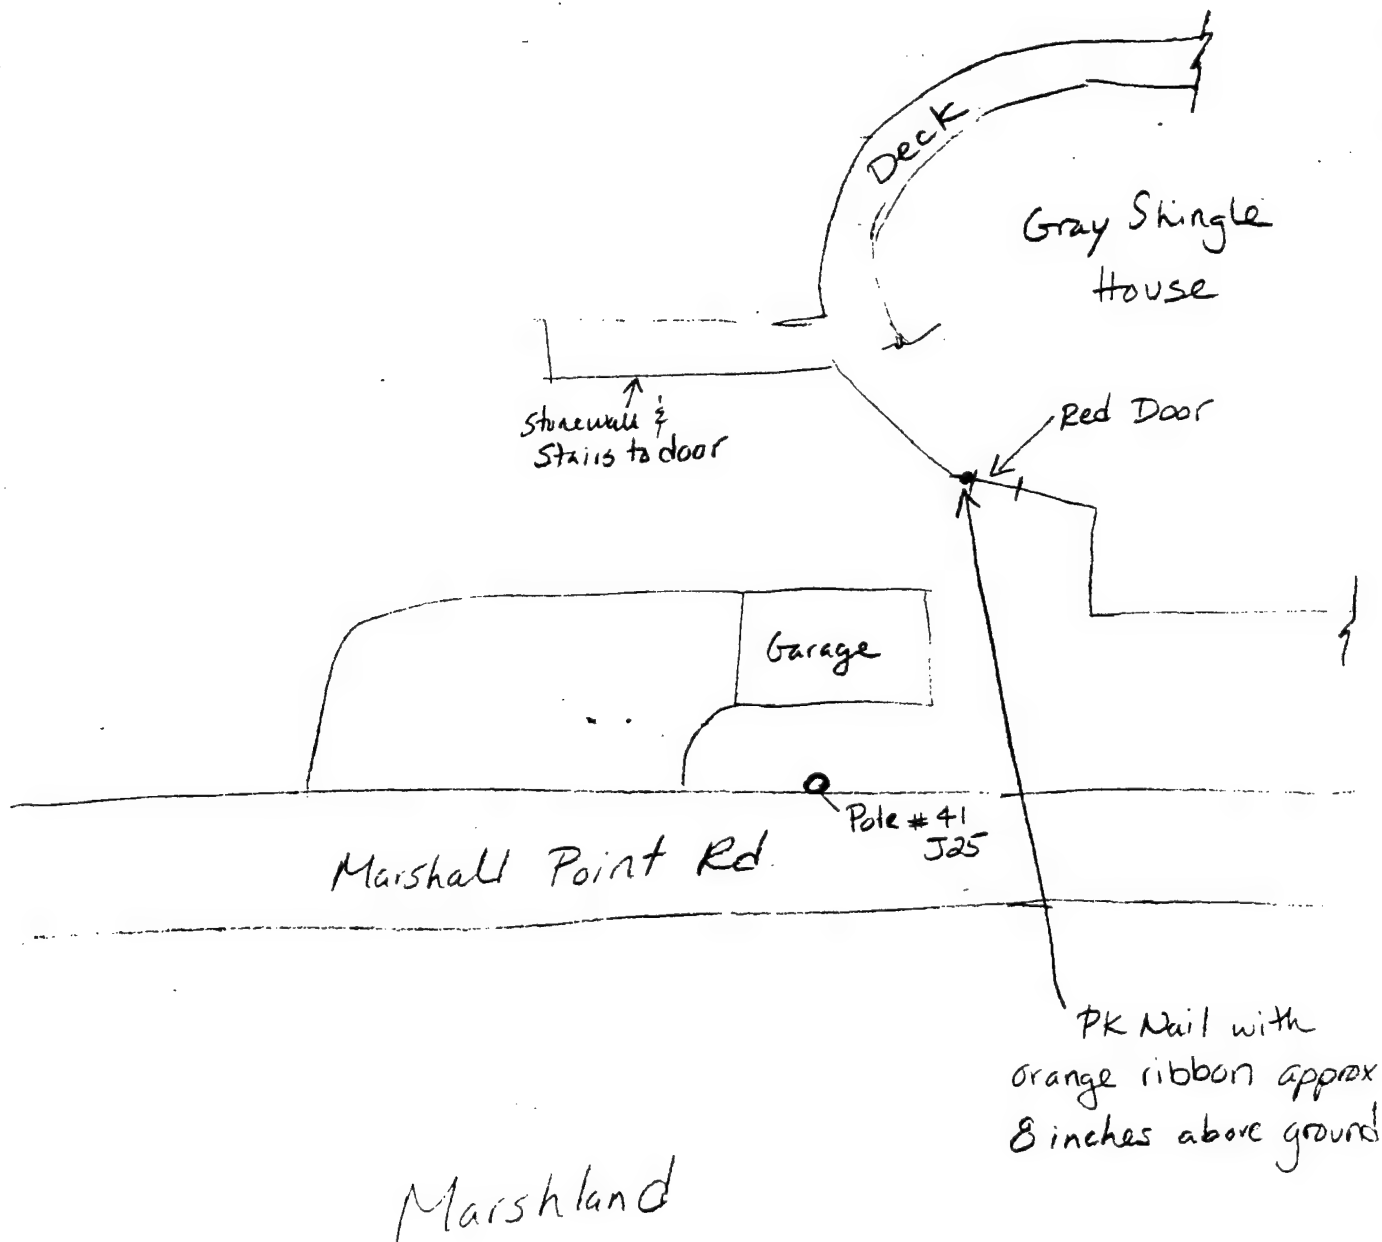 Deck
Gray Shingle
House
Stonewall &
Stairs to door
Red Door
Garage
Pole # 41
J25
Marshall Point Rd.
PK Nail with
orange ribbon approx
8 inches above ground
Marshland